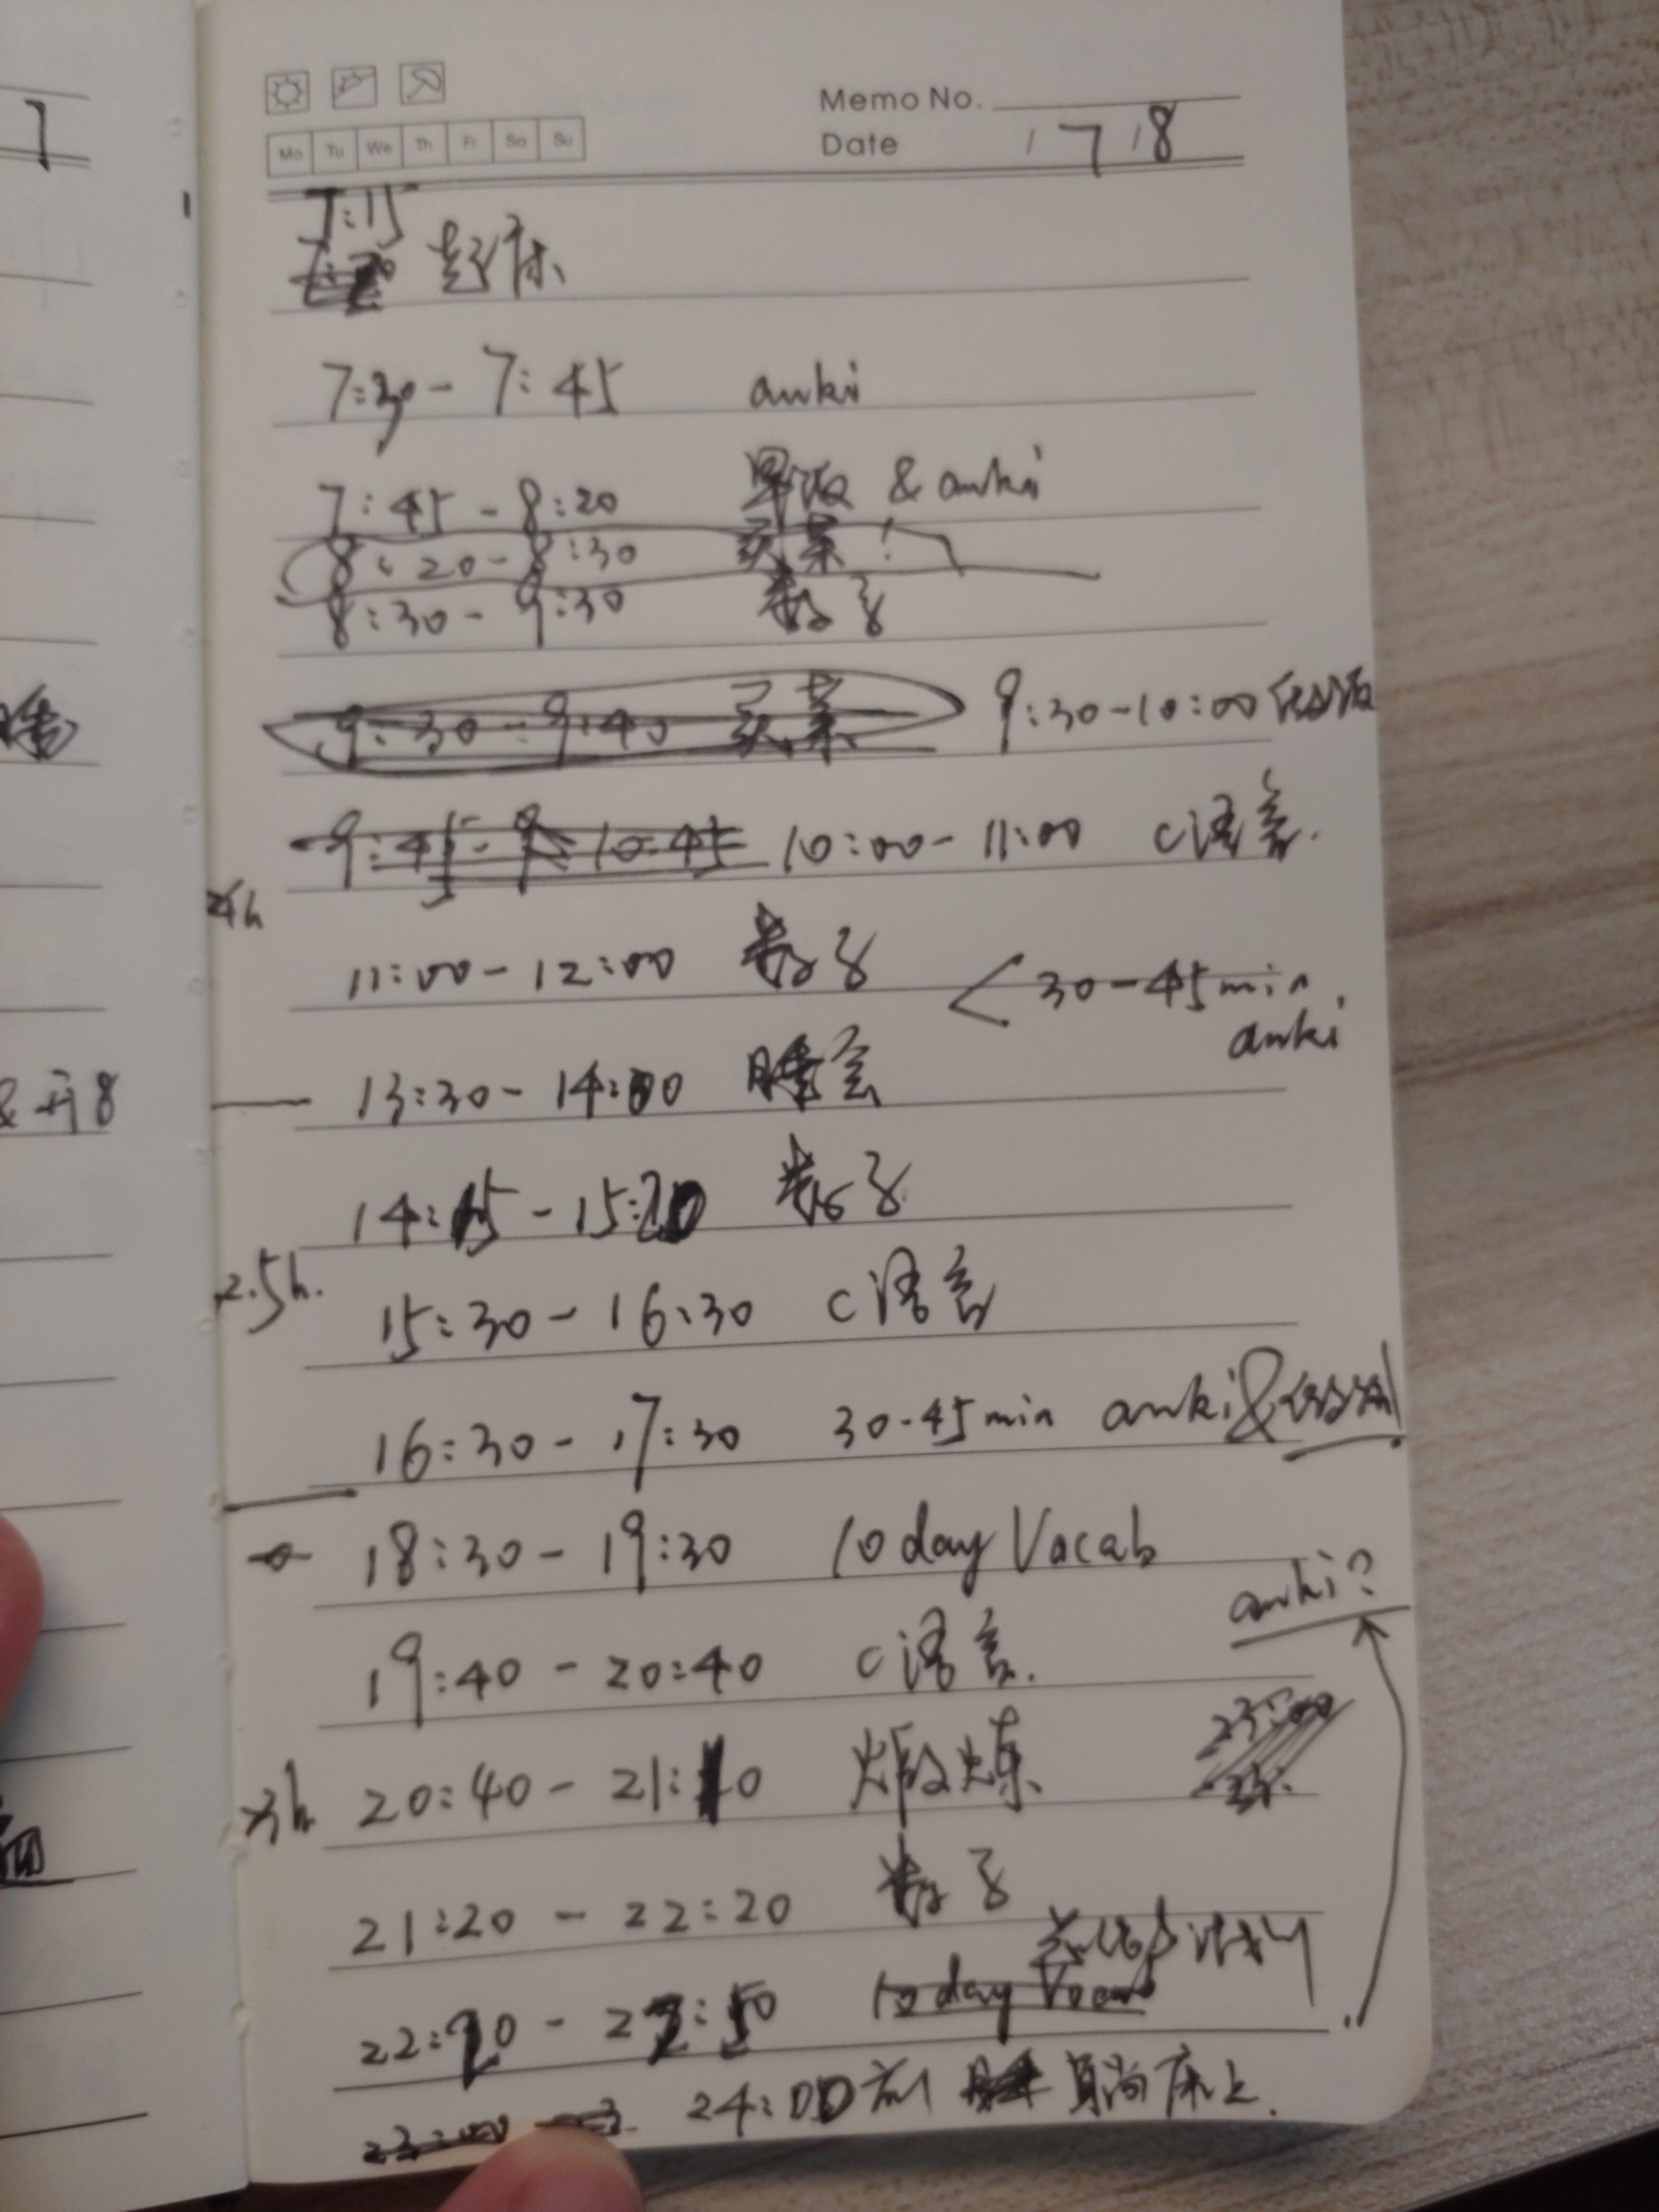 Memo No.
Mo Tu We Th Fr Sa Su
Date / 7 / 8
7:15
起床
7:30 - 7:45 anki
7:45 - 8:20 早饭 & anki
8:20 - 8:30 买菜!
8:30 - 9:30 数学
9:30 - 9:40 买菜 9:30-10:00 做饭
9:45 - 10:45 10:00 - 11:00 C语言.
4h
11:00 - 12:00 数学
< 30-45min anki
13:30 - 14:00 睡会
14:15 - 15:20 数学
2.5h.
15:30 - 16:30 C语言
16:30 - 17:30 30-45min anki & 做饭!
18:30 - 19:30 10 day Vacab
anki?
19:40 - 20:40 C语言.
23:00
3h
20:40 - 21:10 煅炼
21:20 - 22:20 数学
计划
22:20 - 22:50 10 day Vocab
23:00 24:00前 躺床上.
& 开8